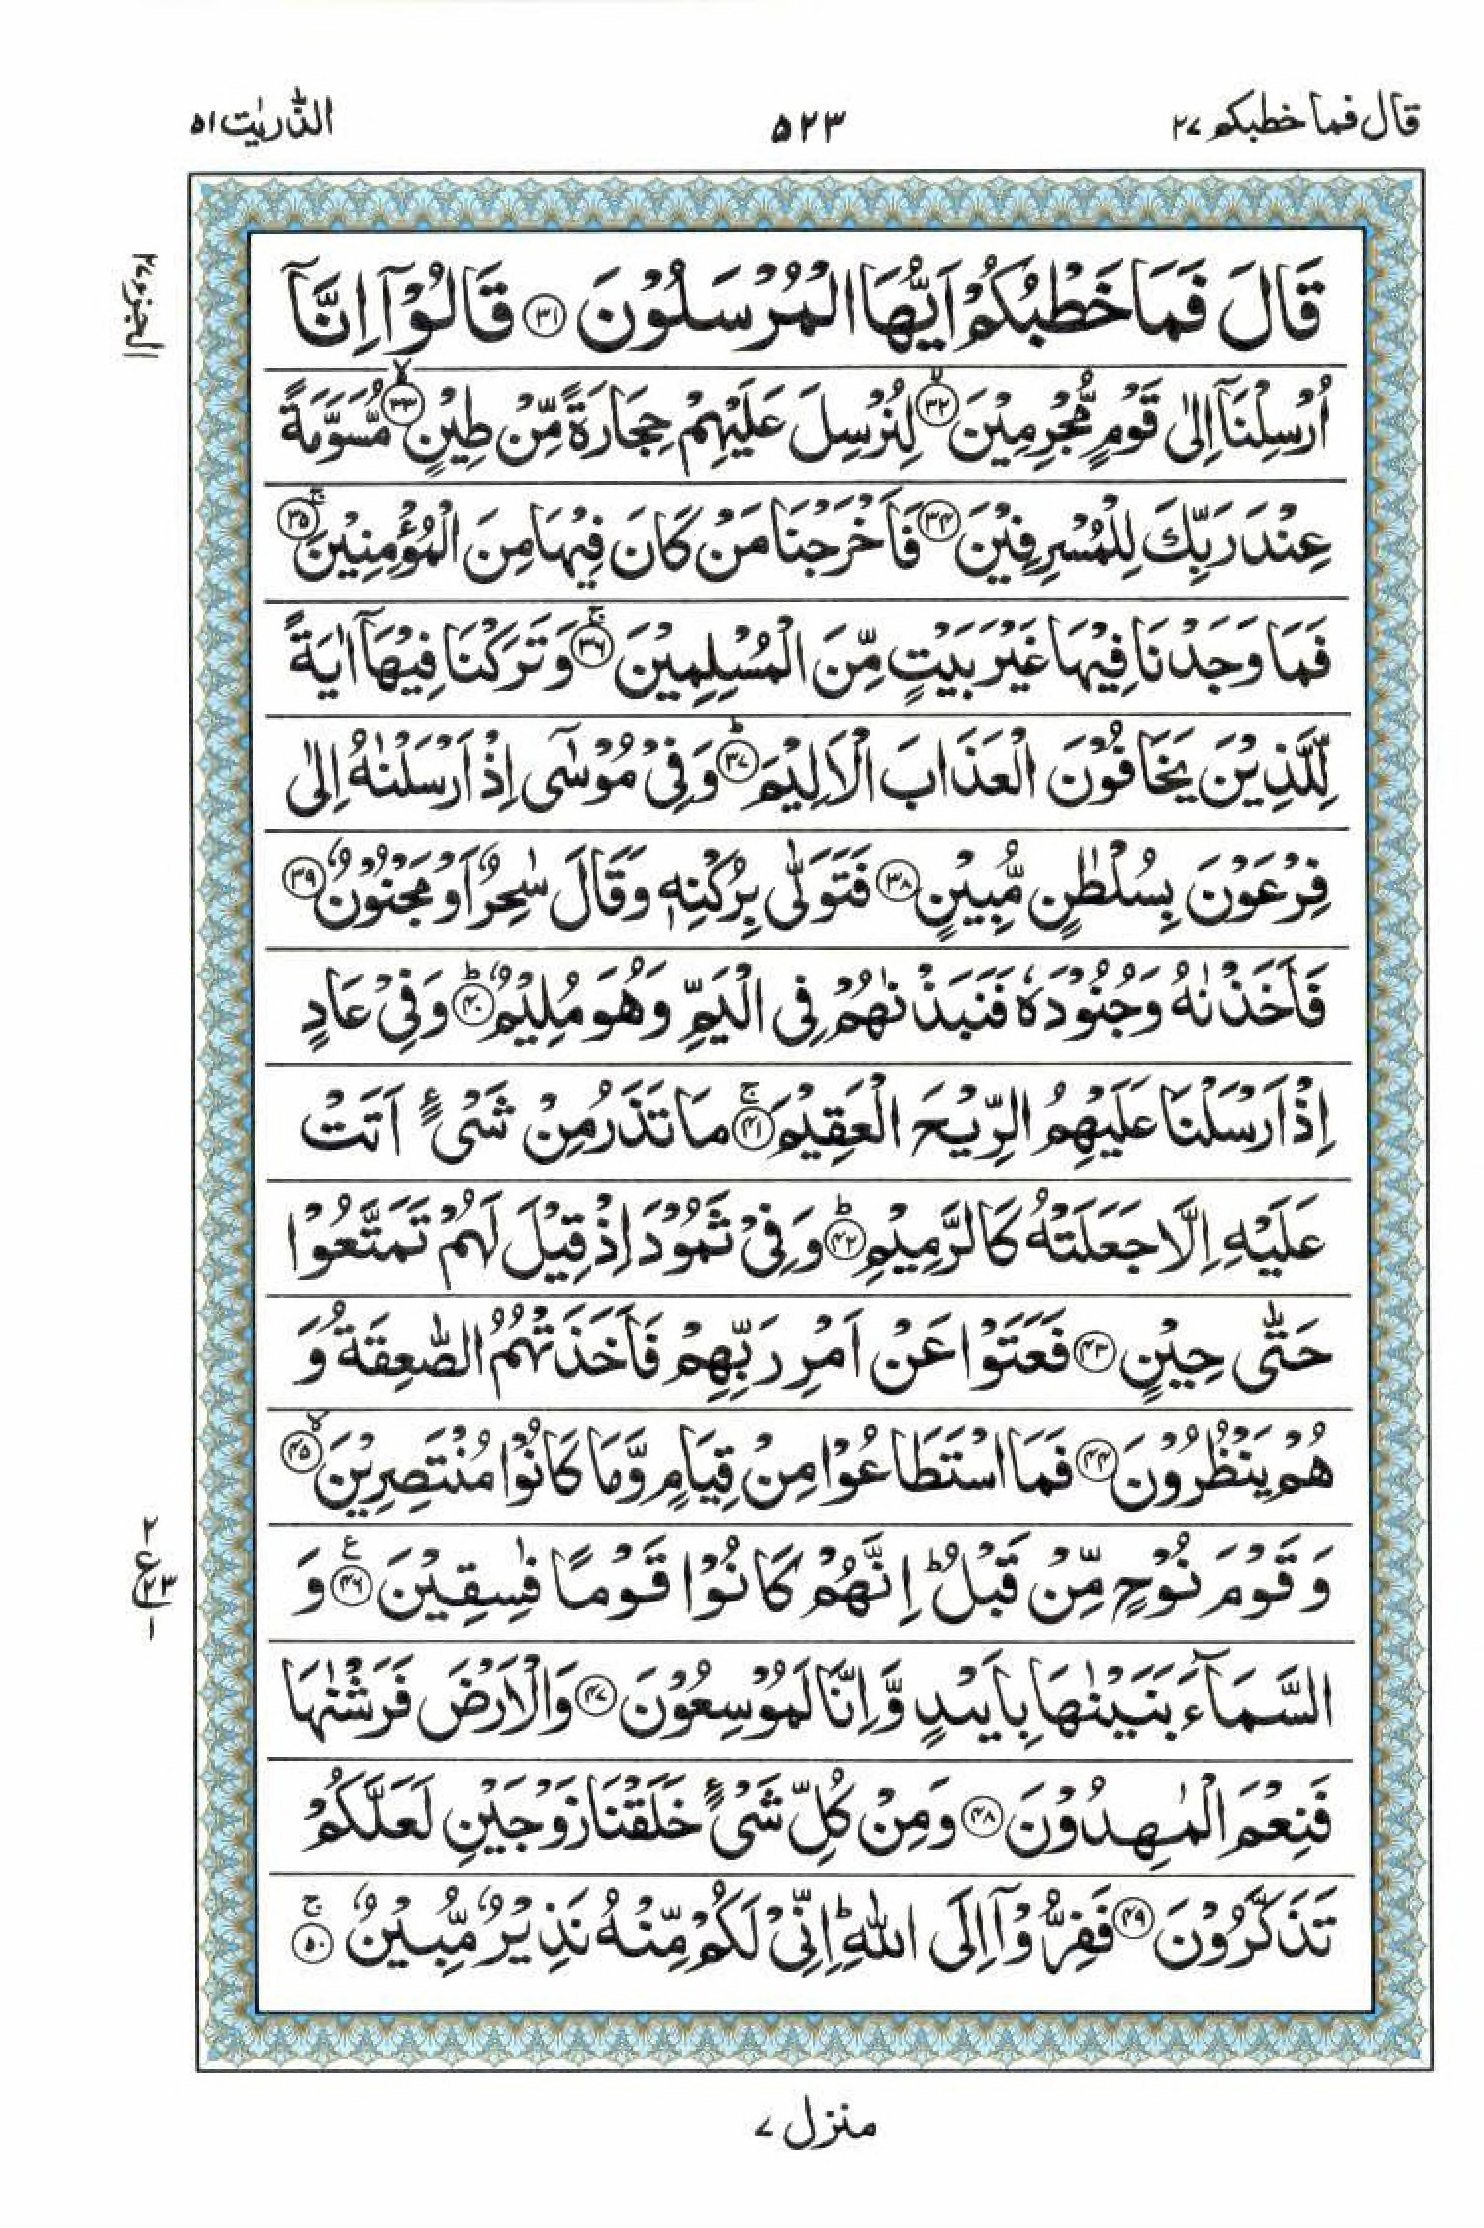 قال فما خطبكم ٢٧
٥٢٣
الذّٰريٰت ٥١
الجزء ٢٧
قَالَ فَمَا خَطْبُكُمْ اَيُّهَا الْمُرْسَلُوْنَ ۝٣١ قَالُوْۤا اِنَّاۤ
اُرْسِلْنَاۤ اِلٰى قَوْمٍ مُّجْرِمِيْنَ ۝٣٢ۙ لِنُرْسِلَ عَلَيْهِمْ حِجَارَةً مِّنْ طِيْنٍ ۝٣٣ۙ مُّسَوَّمَةً
عِنْدَ رَبِّكَ لِلْمُسْرِفِيْنَ ۝٣٤ فَاَخْرَجْنَا مَنْ كَانَ فِيْهَا مِنَ الْمُؤْمِنِيْنَ ۝٣٥ۚ
فَمَا وَجَدْنَا فِيْهَا غَيْرَ بَيْتٍ مِّنَ الْمُسْلِمِيْنَ ۝٣٦ۚ وَتَرَكْنَا فِيْهَاۤ اٰيَةً
لِّلَّذِيْنَ يَخَافُوْنَ الْعَذَابَ الْاَلِيْمَ ۝٣٧ؕ وَفِيْ مُوْسٰۤى اِذْ اَرْسَلْنٰهُ اِلٰى
فِرْعَوْنَ بِسُلْطٰنٍ مُّبِيْنٍ ۝٣٨ فَتَوَلّٰى بِرُكْنِهٖ وَقَالَ سٰحِرٌ اَوْ مَجْنُوْنٌ ۝٣٩
فَاَخَذْنٰهُ وَجُنُوْدَهٗ فَنَبَذْنٰهُمْ فِى الْيَمِّ وَهُوَ مُلِيْمٌ ۝٤٠ؕ وَفِيْ عَادٍ
اِذْ اَرْسَلْنَا عَلَيْهِمُ الرِّيْحَ الْعَقِيْمَ ۝٤١ۚ مَا تَذَرُ مِنْ شَيْءٍ اَتَتْ
عَلَيْهِ اِلَّا جَعَلَتْهُ كَالرَّمِيْمِ ۝٤٢ؕ وَفِيْ ثَمُوْدَ اِذْ قِيْلَ لَهُمْ تَمَتَّعُوْا
حَتّٰى حِيْنٍ ۝٤٣ فَعَتَوْا عَنْ اَمْرِ رَبِّهِمْ فَاَخَذَتْهُمُ الصّٰعِقَةُ وَ
هُمْ يَنْظُرُوْنَ ۝٤٤ فَمَا اسْتَطَاعُوْا مِنْ قِيَامٍ وَّمَا كَانُوْا مُنْتَصِرِيْنَ ۝٤٥ۙ
وَقَوْمَ نُوْحٍ مِّنْ قَبْلُ ؕ اِنَّهُمْ كَانُوْا قَوْمًا فٰسِقِيْنَ ۝٤٦ ع وَ
٢
ع
٢٣
١
السَّمَآءَ بَنَيْنٰهَا بِاَيْىدٍ وَّاِنَّا لَمُوْسِعُوْنَ ۝٤٧ وَالْاَرْضَ فَرَشْنٰهَا
فَنِعْمَ الْمٰهِدُوْنَ ۝٤٨ وَمِنْ كُلِّ شَيْءٍ خَلَقْنَا زَوْجَيْنِ لَعَلَّكُمْ
تَذَكَّرُوْنَ ۝٤٩ فَفِرُّوْۤا اِلَى اللّٰهِ ؕ اِنِّيْ لَكُمْ مِّنْهُ نَذِيْرٌ مُّبِيْنٌ ۝٥٠ۚ
منزل ٧